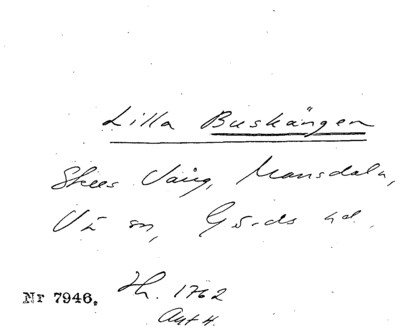 Lilla Buskängen
Skees Väng, Mansdala,
Vä sn, Gärds hd.
Nr 7946. Hh. 1762
Avt H.